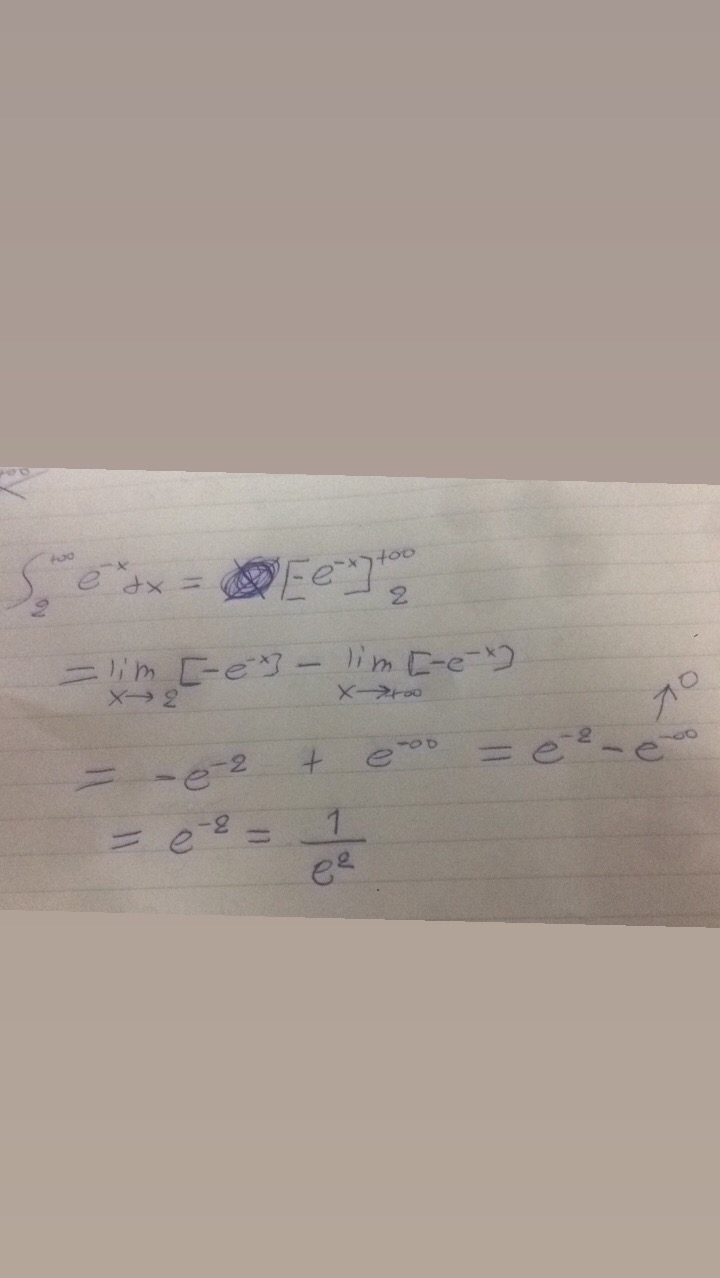 ∫₂^{+∞} e^{-x} dx = [-e^{-x}]₂^{+∞}
= lim_{x→2} [-e^{-x}] - lim_{x→+∞} [-e^{-x}]
= -e^{-2} + e^{-∞} = e^{-2} - e^{-∞} ↗ 0
= e^{-2} = 1/e²